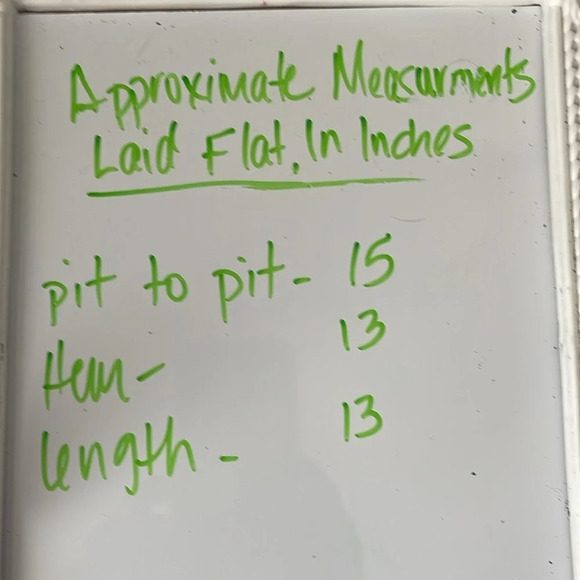 Approximate Measurments
Laid Flat. In Inches
pit to pit - 15
Hem - 13
length - 13